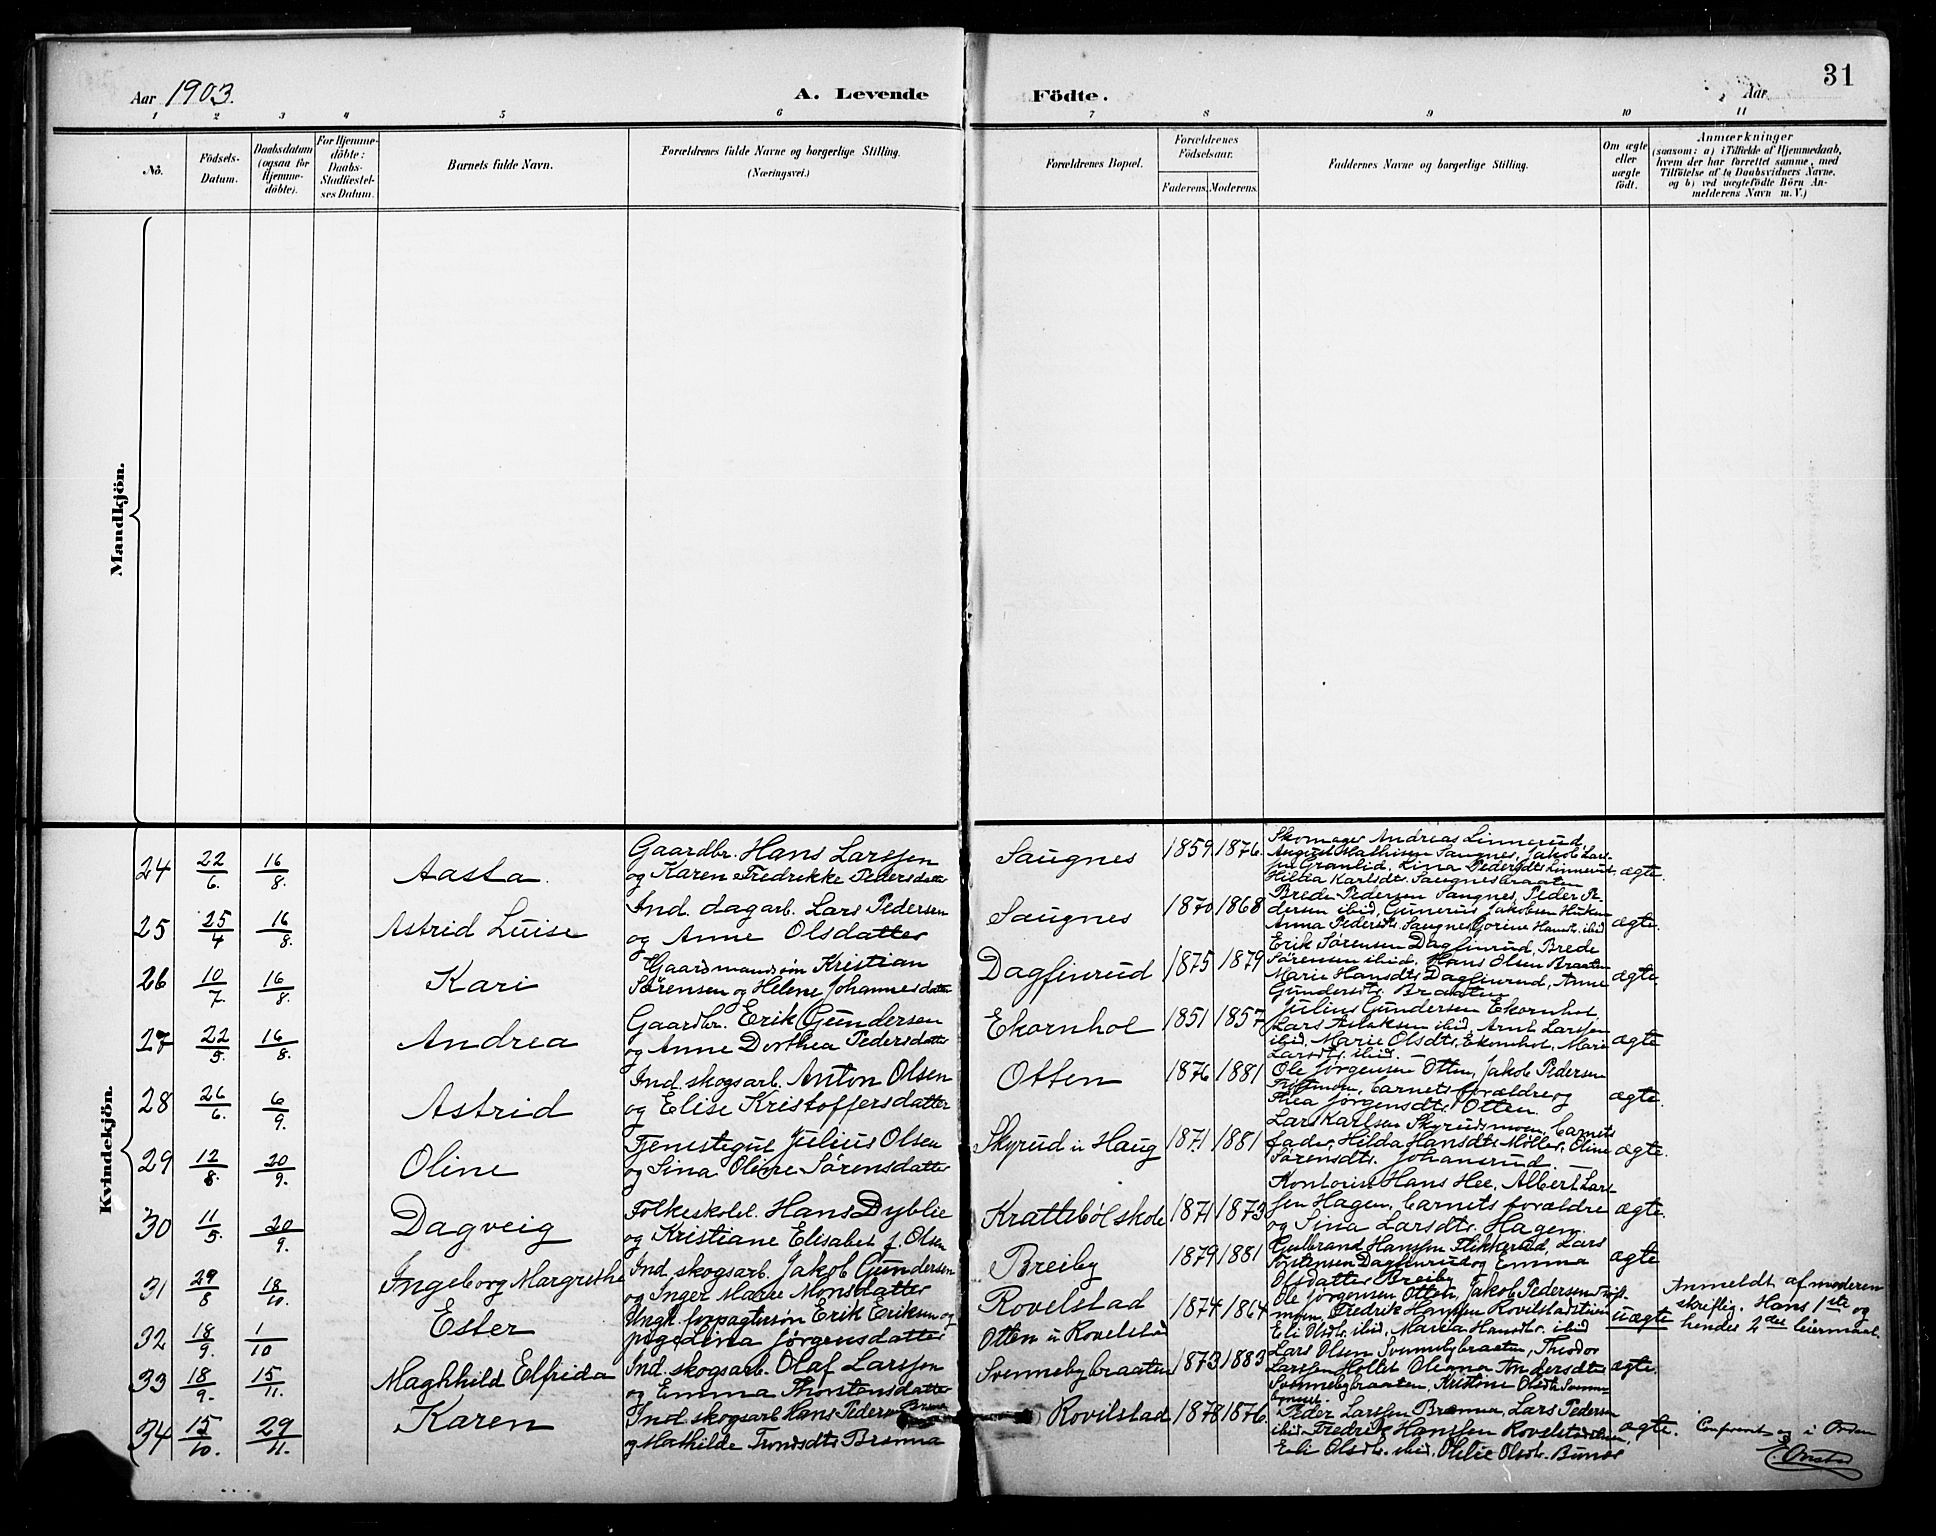 Aar 1903.
A. Levende Födte.
Aar
31
1 2 3 4 5 6 7 8 9 10 11
No.
Födsels-Datum.
Daabsdatum (ogsaa for Hjemme-döbte).
For Hjemme-döbte: Daabs-Stadfæstel-ses Datum.
Barnets fulde Navn.
Forældrenes fulde Navne og borgerlige Stilling. (Næringsvei.)
Forældrenes Bopæl.
Forældrenes Födselsaar.
Faderens. Moderens.
Faddernes Navne og borgerlige Stilling.
Om ægte eller uægte födt.
Anmærkninger
(saasom: a) i Tilfælde af Hjemmedaab,
hvem der har forrettet samme, med
Tilföielse af to Daabsvidners Navne,
og b) ved uægtefödte Börn An-
melderens Navn m. V.)
Mandkjön.
Kvindekjön.
24 22/6. 16/8. Aasta. Gaardbr. Hans Larssen
og Karen Fredrikke Pedersdatter
Saugnes 1859. 1876.
Skomager Andreas Linnerud
August Mathisen Saugnes, Jakob Lars-
sen Granlid, Lina Pedersdtr Linnerud
Hilda Karlsdt. Saugnesbraaten
ægte.
25 25/4 16/8. Astrid Luise Ind. dagarb. Lars Pedersen
og Anne Olsdatter
Saugnes 1870 1868
Brede Pedersen Saugnes, Peder Pe-
dersen ibid, Gunerius Jakobsen
Anna Pedersdtr. Saugnes, Gorine Hansdt. ibid
ægte.
26 10/7. 16/8. Kari Gaardmandssön Kristian
Sörensen og Helene Johannesdatter
Dagfinrud 1875 1879
Erik Sörensen Dagfinrud, Brede
Sörensen ibid, Hans Olsen Braaten
Marie Hansdtr Dagfinrud, Anne
Gundersdtr. Braaten
ægte.
27 22/5. 16/8. Andrea Gaardbr. Erik Gundersen
og Anne Dorthea Pedersdatter
Ekornhol 1851 1857
Julius Gundersen Ekornhol,
Lars Aslaksen ibid, Arnt Larssen
ibid, Marie Olsdtr. Ekornhol, Marie
Larsdtr. ibid.
ægte
28 26/6. 6/9. Astrid Ind. skogsarb. Anton Olsen
og Elise Kristoffersdatter
Otten 1876 1881
Ole Jörgensen Otten, Jakob Pedersen
barnets forældre og
Thea Jörgensdtr. Otten.
ægte.
29 12/8. 20/9. Oline Tjenestegut Julius Olsen
og Lina Oline Sörensdatter
Skyrud u Haug 1871. 1881
Lars Karlsen Skyrudsmoen, barnets
fader, Hilda Hansdtr Möller, Oline
Sörensdtr. Johanerud.
ægte.
30 11/5. 20/9. Dagveig Folkeskolel. Hans Dyblie
og Kristiane Elisabet f. Olsen
Krattebölskole 1871 1873
Kontorist Hans Hee, Albert Lars-
sen Hagen, barnets forældre
og Lina Larsdtr. Hagen.
ægte.
31 29/8 18/10. Ingeborg Margrethe Ind. skogsarb. Jakob Gundersen
og Inger Marie Monsdatter
Breiby 1879 1881
Gulbrand Hanssen Flikkerud, Lars
Torstensen Dagfinrud og Emma
Olsdatter Breiby
ægte
32 18/9. 1/10 Ester Ungk. forpagtersön Erik Eriksen og
pige Lina Jörgensdatter
Rovelstad
Otten u Rovelstad 1874 1864
Ole Jörgensen Otten, Jakob Pedersen
Fredrik Hanssen Rovilstadstuen
Eli Olsdtr. ibid, Maria Hansdtr. ibid
uægte
Anmeldt af moderen
skriftlig. Hans 1ste og
hendes 2det leiermaal.
33 18/9. 15/11. Maghhild Elfrida Ind. skogsarb. Olaf Larssen
og Emma Thorstensdatter
Svennebybraaten 1873 1883
Lars Olsen Svennebybraaten, Theodor
Larssen Holtet, Oleana Andersdtr
Svennebybraaten, Kristine Olsdtr
ægte.
34 15/10. 29/11. Karen Ind. skogsarb Hans Pedersen Brenna
og Mathilde Trondsdtr Brenna
Rovilstad 1878 1876.
Peder Larssen Brenna, Lars Pedersen
ibid. Fredrik Hanssen Rovelstadstuen,
Eli Olsdtr. ibid, Olelie Olsdtr.
ægte.
Confereret og i Orden